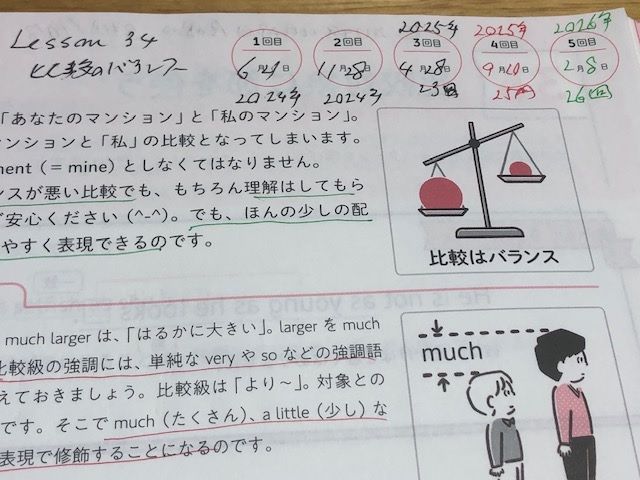 Lesson 34
比較のバランス
1回目
6月21日
2024年
2回目
11月28日
2024年
2025年
3回目
4月28日
23回
2025年
4回目
9月20日
25回
2026年
5回目
2月8日
26回
「あなたのマンション」と「私のマンション」。
マンションと「私」の比較となってしまいます。
ment（= mine）としなくてはなりません。
ンスが悪い比較でも、もちろん理解はしてもら
ご安心ください（^-^）。でも、ほんの少しの配
やすく表現できるのです。
比較はバランス
much larger は、「はるかに大きい」。larger を much
比較級の強調には、単純な very や so などの強調語
えておきましょう。比較級は「より〜」。対象との
です。そこで much（たくさん）、a little（少し）な
表現で修飾することになるのです。
much